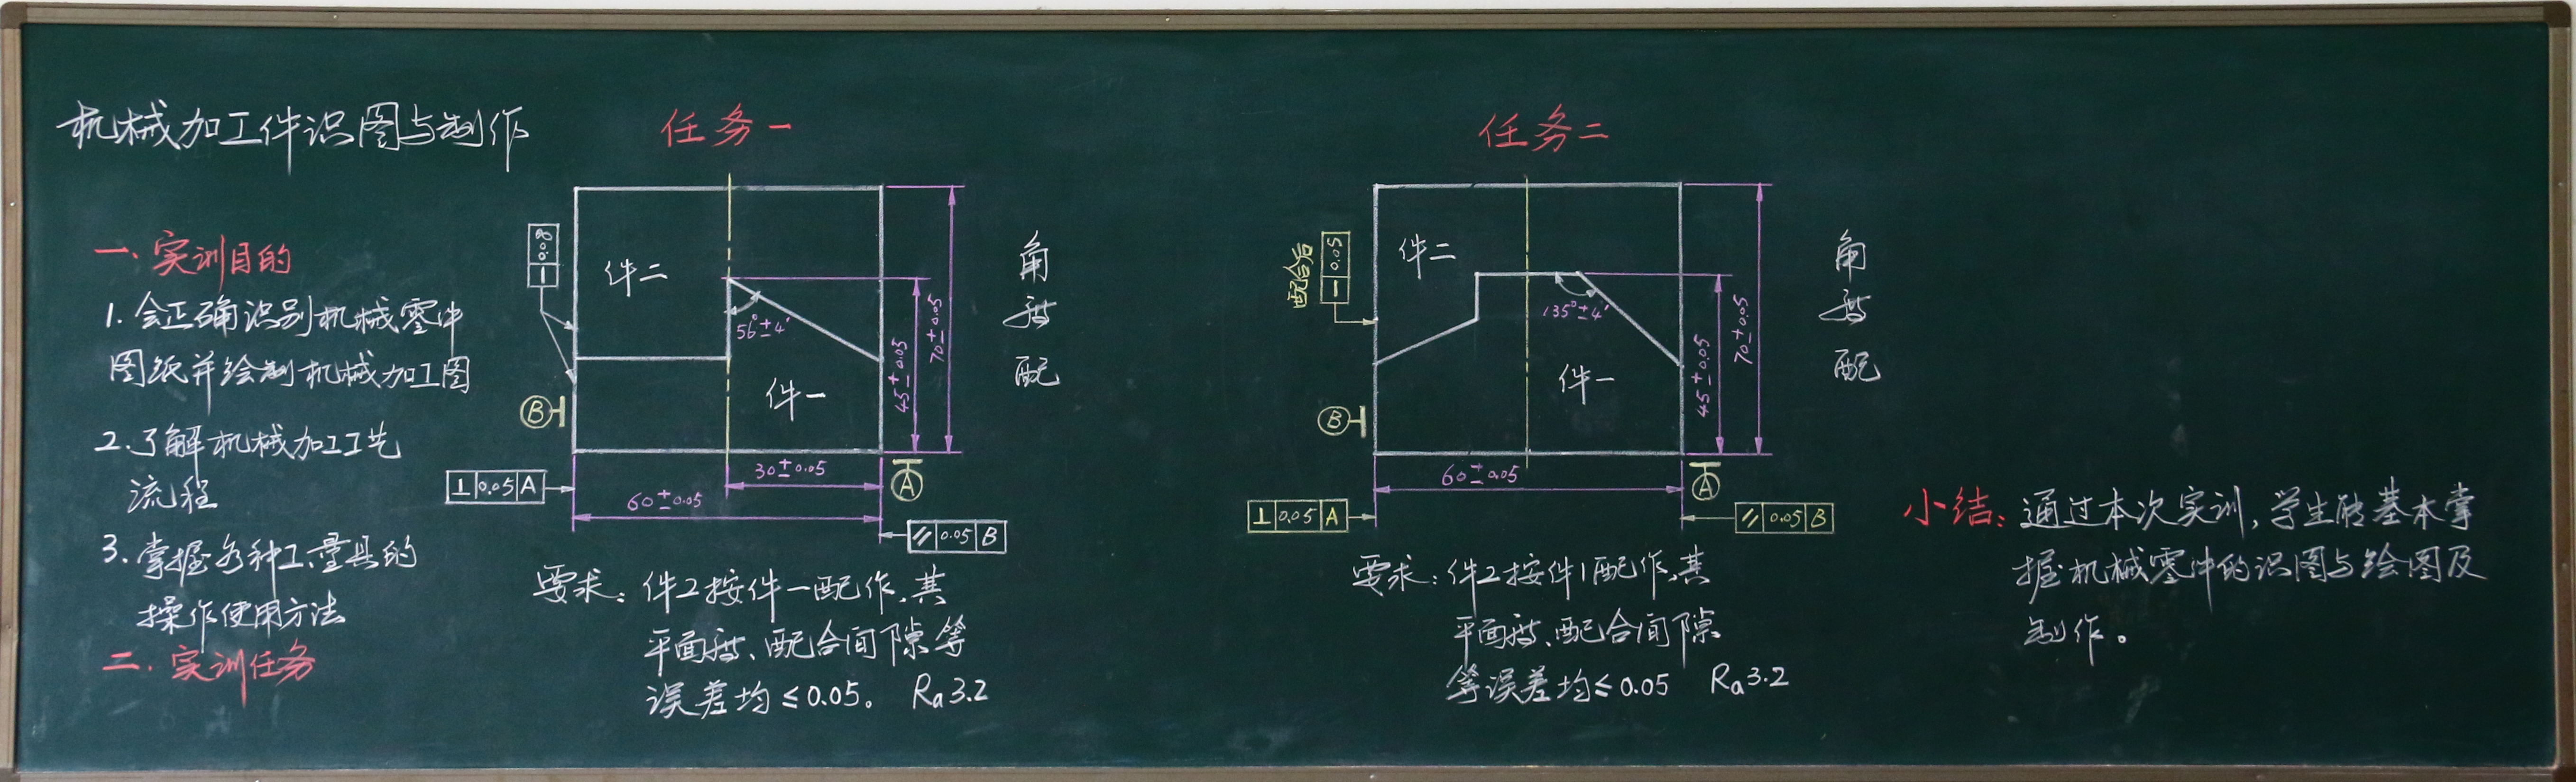 机械加工件识图与制作
一、实训目的
1. 会正确识别机械零件
图纸并绘制机械加工图
2. 了解机械加工工艺
流程
3. 掌握各种工量具的
操作使用方法
二. 实训任务
任务一
件二
件一
56°±4′
45±0.05
70±0.05
30±0.05
60±0.05
B
A
⊥ 0.05 A
// 0.05 B
角
度
配
要求: 件2按件一配作,其
平面度、配合间隙等
误差均≤0.05。 Ra3.2
任务二
配合后
— 0.05
件二
件一
135°±4′
45±0.05
70±0.05
60±0.05
B
A
⊥ 0.05 A
// 0.05 B
角
度
配
要求: 件2按件1配作,其
平面度、配合间隙
等误差均≤0.05 Ra3.2
小结: 通过本次实训,学生能基本掌
握机械零件的识图与绘图及
制作。